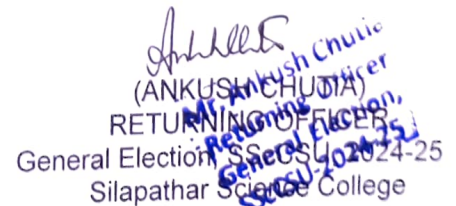 (ANKUSH CHUTIA)
RETURNING OFFICER
General Election, SSCCSU, 2024-25
Silapathar Science College
Mr. Ankush Chutia
Returning Officer
General Election,
SSCCSU-2024-25